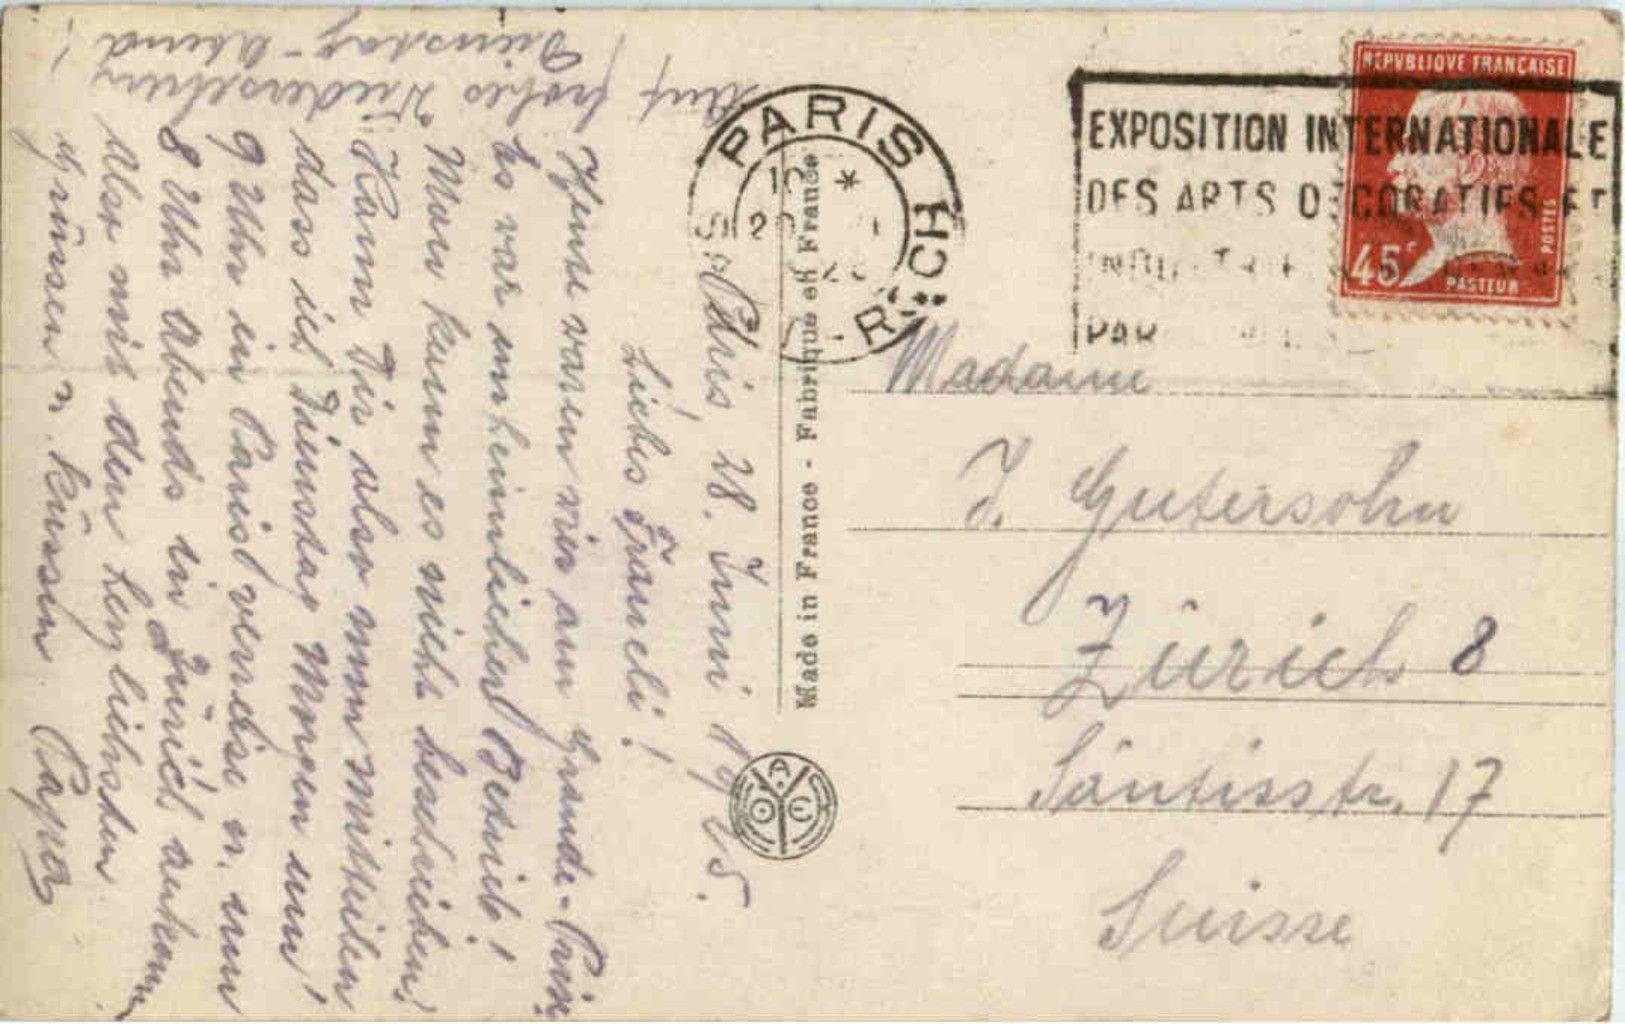 Paris, 28. Juni 1925.
Liebes Fraueli!
Heute waren wir am Grande-Prix,
Es war ein heimlicher Betrieb!
Man kann es nicht beschreiben!
Kann Dir also nun mitteilen
dass ich Dienstag Morgen um
9 Uhr in Paris verreise u. um
8 Uhr Abends in Zürich ankomme
Aber mit den herzlichsten
Grüssen u. Küssen Papa
auf frohes Wiedersehen
Dienstag-Abend!
Made in France - Fabriqué en France
PARIS
10 *
REPVBLIQVE FRANÇAISE
45c
POSTES
PASTEUR
EXPOSITION INTERNATIONALE
DES ARTS DECORATIFS ET
Madame
J. Gutersohn
Zürich 8
Säntisstr. 17
Suisse